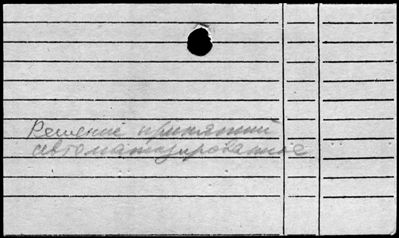 Решение принятий
автоматизированное